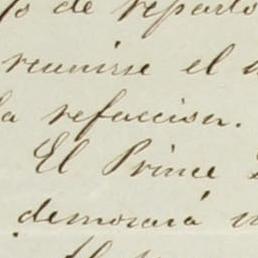 de reparto
reunirse el
la refaccion.
El Prince
demorará